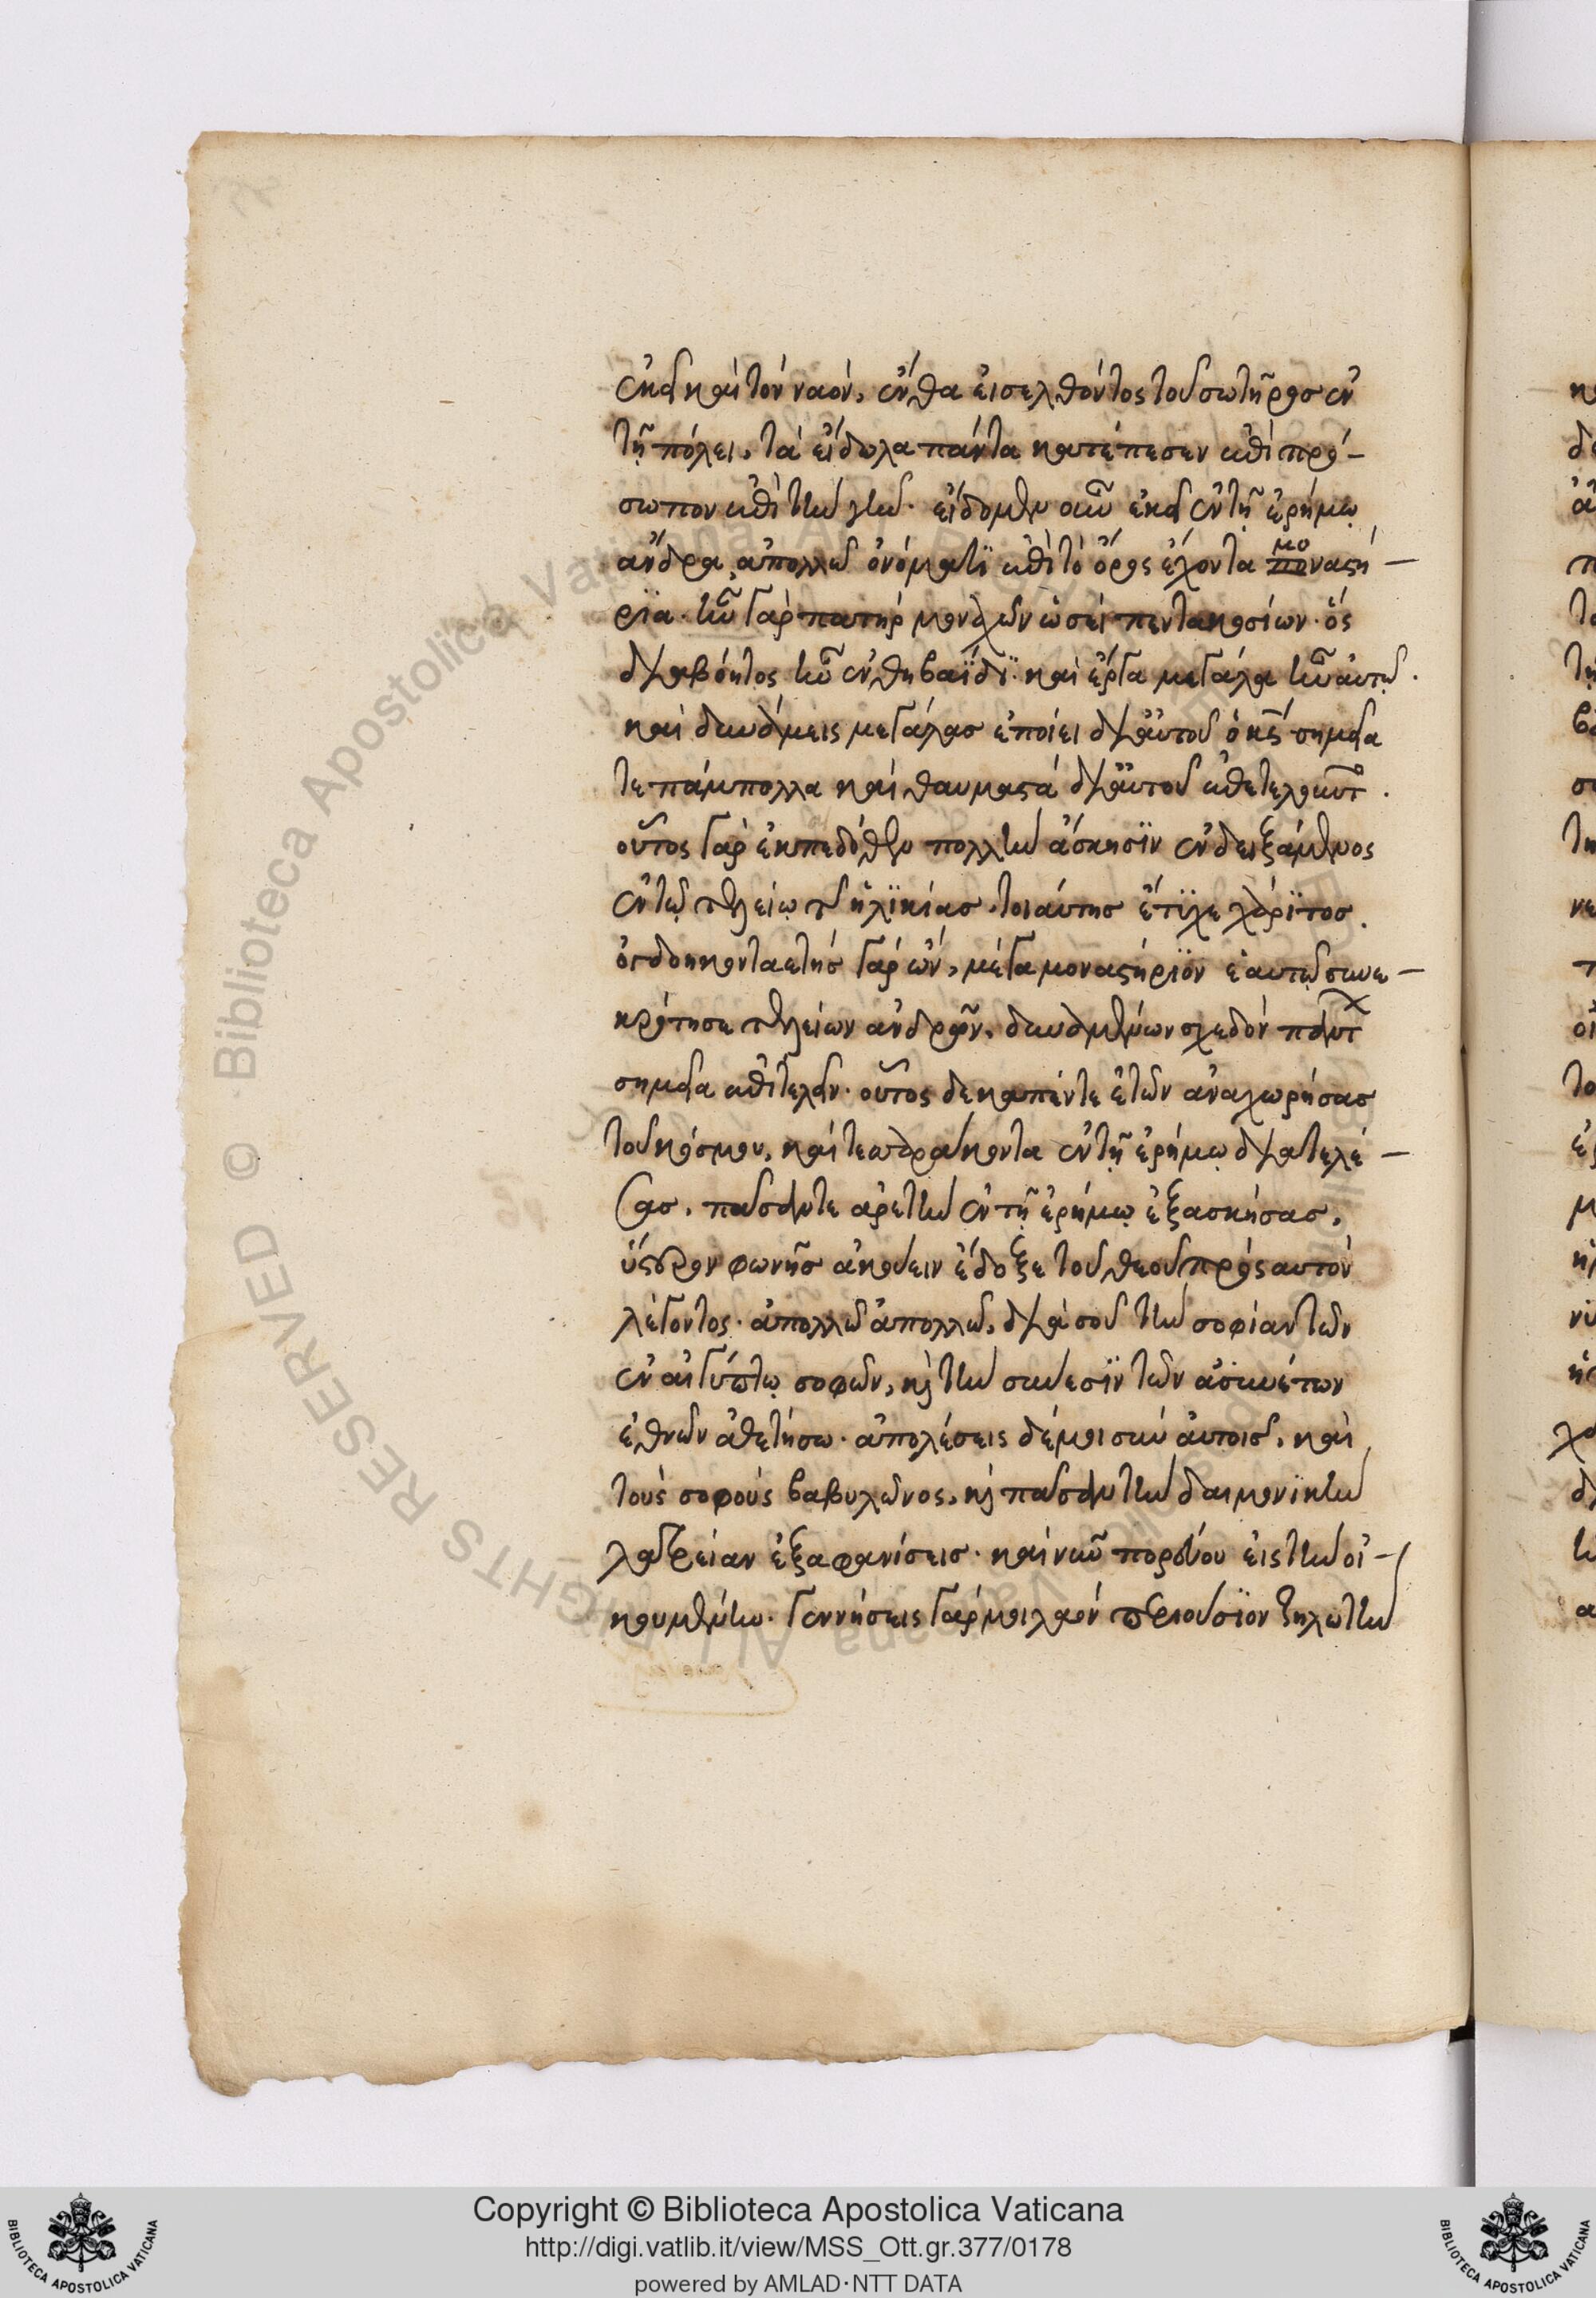 ἐκεῖ καὶ τὸν ναὸν, ἔνθα εἰσελθόντος τοῦ σωτῆρος ἐν
τῇ πόλει, τὰ εἴδωλα πάντα κατέπεσεν ἐπὶ πρό-
σωπον ἐπὶ τὴν γῆν. εἴδομεν οὖν ἐκεῖ ἐν τῇ ἐρήμῳ
ἄνδρα, ἀπολλὼ ὀνόματϊ ἐπὶ τὸ ὄρος ἔχοντα μοναστή-
ρϊα. ἦν γὰρ πατὴρ μοναχῶν ὡσεὶ πεντακοσίων. ὃς
διαβόητος ἦν ἐν θηβαΐδϊ. καὶ ἔργα μεγάλα ἦν αὐτῷ.
καὶ δυνάμεις μεγάλας ἐποίει δι' αὐτοῦ ὁ κς̄ σημεῖα
τε πάμπολλα καὶ θαυμαστὰ δι' αὐτοῦ ἐπετελοῦντο.
οὗτος γὰρ ἐκ παιδόθεν πολλὴν ἄσκησϊν ἐνδειξάμενος
ἐν τῷ τελείῳ τῆς ἡλϊκίας. τοιαύτης ἔτϋχε χάρϊτος.
ὀγδοηκονταετὴς γὰρ ὢν, μέγα μοναστήρϊον ἑαυτῷ συνε-
κρότησε τελείων ἀνδρῶν, δυναμένων σχεδὸν πάντων
σημεῖα ἐπιτελεῖν. οὗτος δεκαπέντε ἐτῶν ἀναχωρήσας
τοῦ κόσμου, καὶ τεσσαράκοντα ἐν τῇ ἐρήμῳ διατελέ-
σας. πᾶσαν τε ἀρετὴν ἐν τῇ ἐρήμῳ ἐξασκήσας,
ὕστερον φωνῆς ἀκούειν ἔδοξε τοῦ θεοῦ πρὸς αυτὸν
λέγοντος. ἀπολλὼ ἀπολλὼ, διὰ σοῦ τὴν σοφίαν τῶν
ἐν αἰγύπτῳ σοφῶν, κ̀ τὴν σύνεσϊν τῶν ἀσυνέτων
ἐθνῶν ἀθετήσω. ἀπολέσεις δέ μοι σὺν ἀυτοῖς, καὶ
τοὺς σοφοὺς βαβυλῶνος, κ̀ πᾶσαν τὴν δαιμονϊκὴν
λατρείαν ἐξαφανίσεις. καὶ νῦν πορεύου εἰς τὴν οἰ-
κουμένην. γεννήσεις γάρ μοι λαὸν περιούσϊον ζηλωτὴν
Copyright © Biblioteca Apostolica Vaticana
http://digi.vatlib.it/view/MSS_Ott.gr.377/0178
powered by AMLAD·NTT DATA